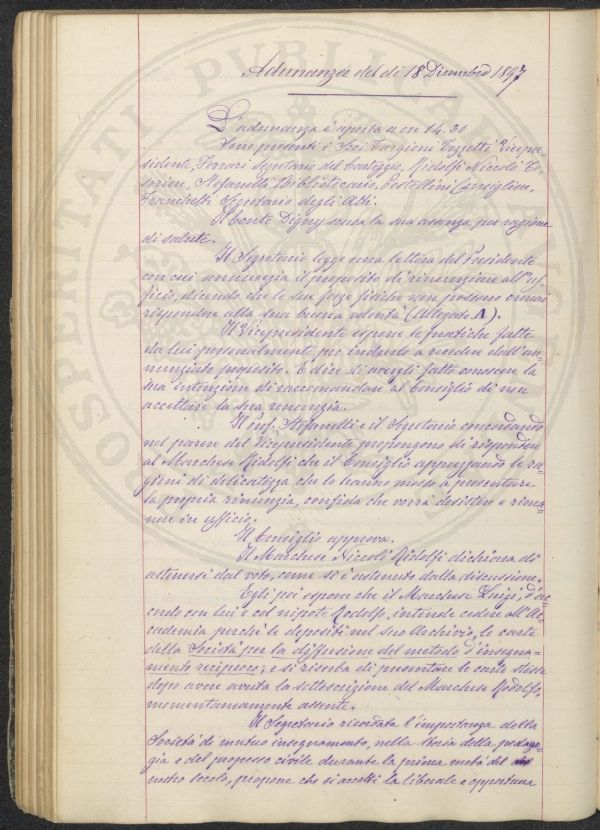 Adunanza del dì 18 Dicembre 1897
L'adunanza è aperta a ore 14.30
Sono presenti i Soci Targioni Tozzetti Vicepre=
sidente, Ferrari Segretario del Carteggio, Ridolfi Niccolò Te=
soriere, Stefanelli Bibliotecario, Pestellini Consigliere,
Franchetti Segretario degli Atti.
Il Conte Digny scusa la sua assenza, per ragione
di salute.
Il Segretario legge una lettera del Presidente
con cui annunzia il proposito di rinunziare all'uf=
ficio, dicendo che le sue forze fisiche non possono ormai
rispondere alla sua buona volontà (Allegato A).
Il Vicepresidente espone le pratiche fatte
da lui personalmente per indurlo a recedere dall'an=
nunziato proposito. E dice di avergli fatto conoscere la
sua intenzione di raccomandare al Consiglio di non
accettare la sua renunzia.
Il Prof. Stefanelli e il Segretario concordando
nel parere del Vicepresidente propongono di rispondere
al Marchese Ridolfi che il Consiglio apprezzando le ra=
gioni di delicatezza che lo hanno mosso a presentare
la propria rinunzia, confida che vorrà desistere e rima=
nere in ufficio.
Il Consiglio approva.
Il Marchese Niccolò Ridolfi dichiara di
astenersi dal voto, come si è astenuto dalla discussione.
Egli poi espone che il Marchese Luigi, d'ac=
cordo con lui e col nipote Rodolfo, intende cedere all'Ac=
cademia perchè le depositi nel suo Archivio, le carte
della Società per la diffusione del metodo d'insegna=
mento reciproco; e si riserba di presentare le carte stesse
dopo avere avuta la sottoscrizione del Marchese Rodolfo,
momentaneamente assente.
Il Segretario ricordata l'importanza della
Società di mutuo insegnamento, nella storia della pedago=
gia e del progresso civile durante la prima metà del
nostro secolo, propone che si accetti la liberale e opportuna
PROSPERITATI PUBLICAE AUGENDAE